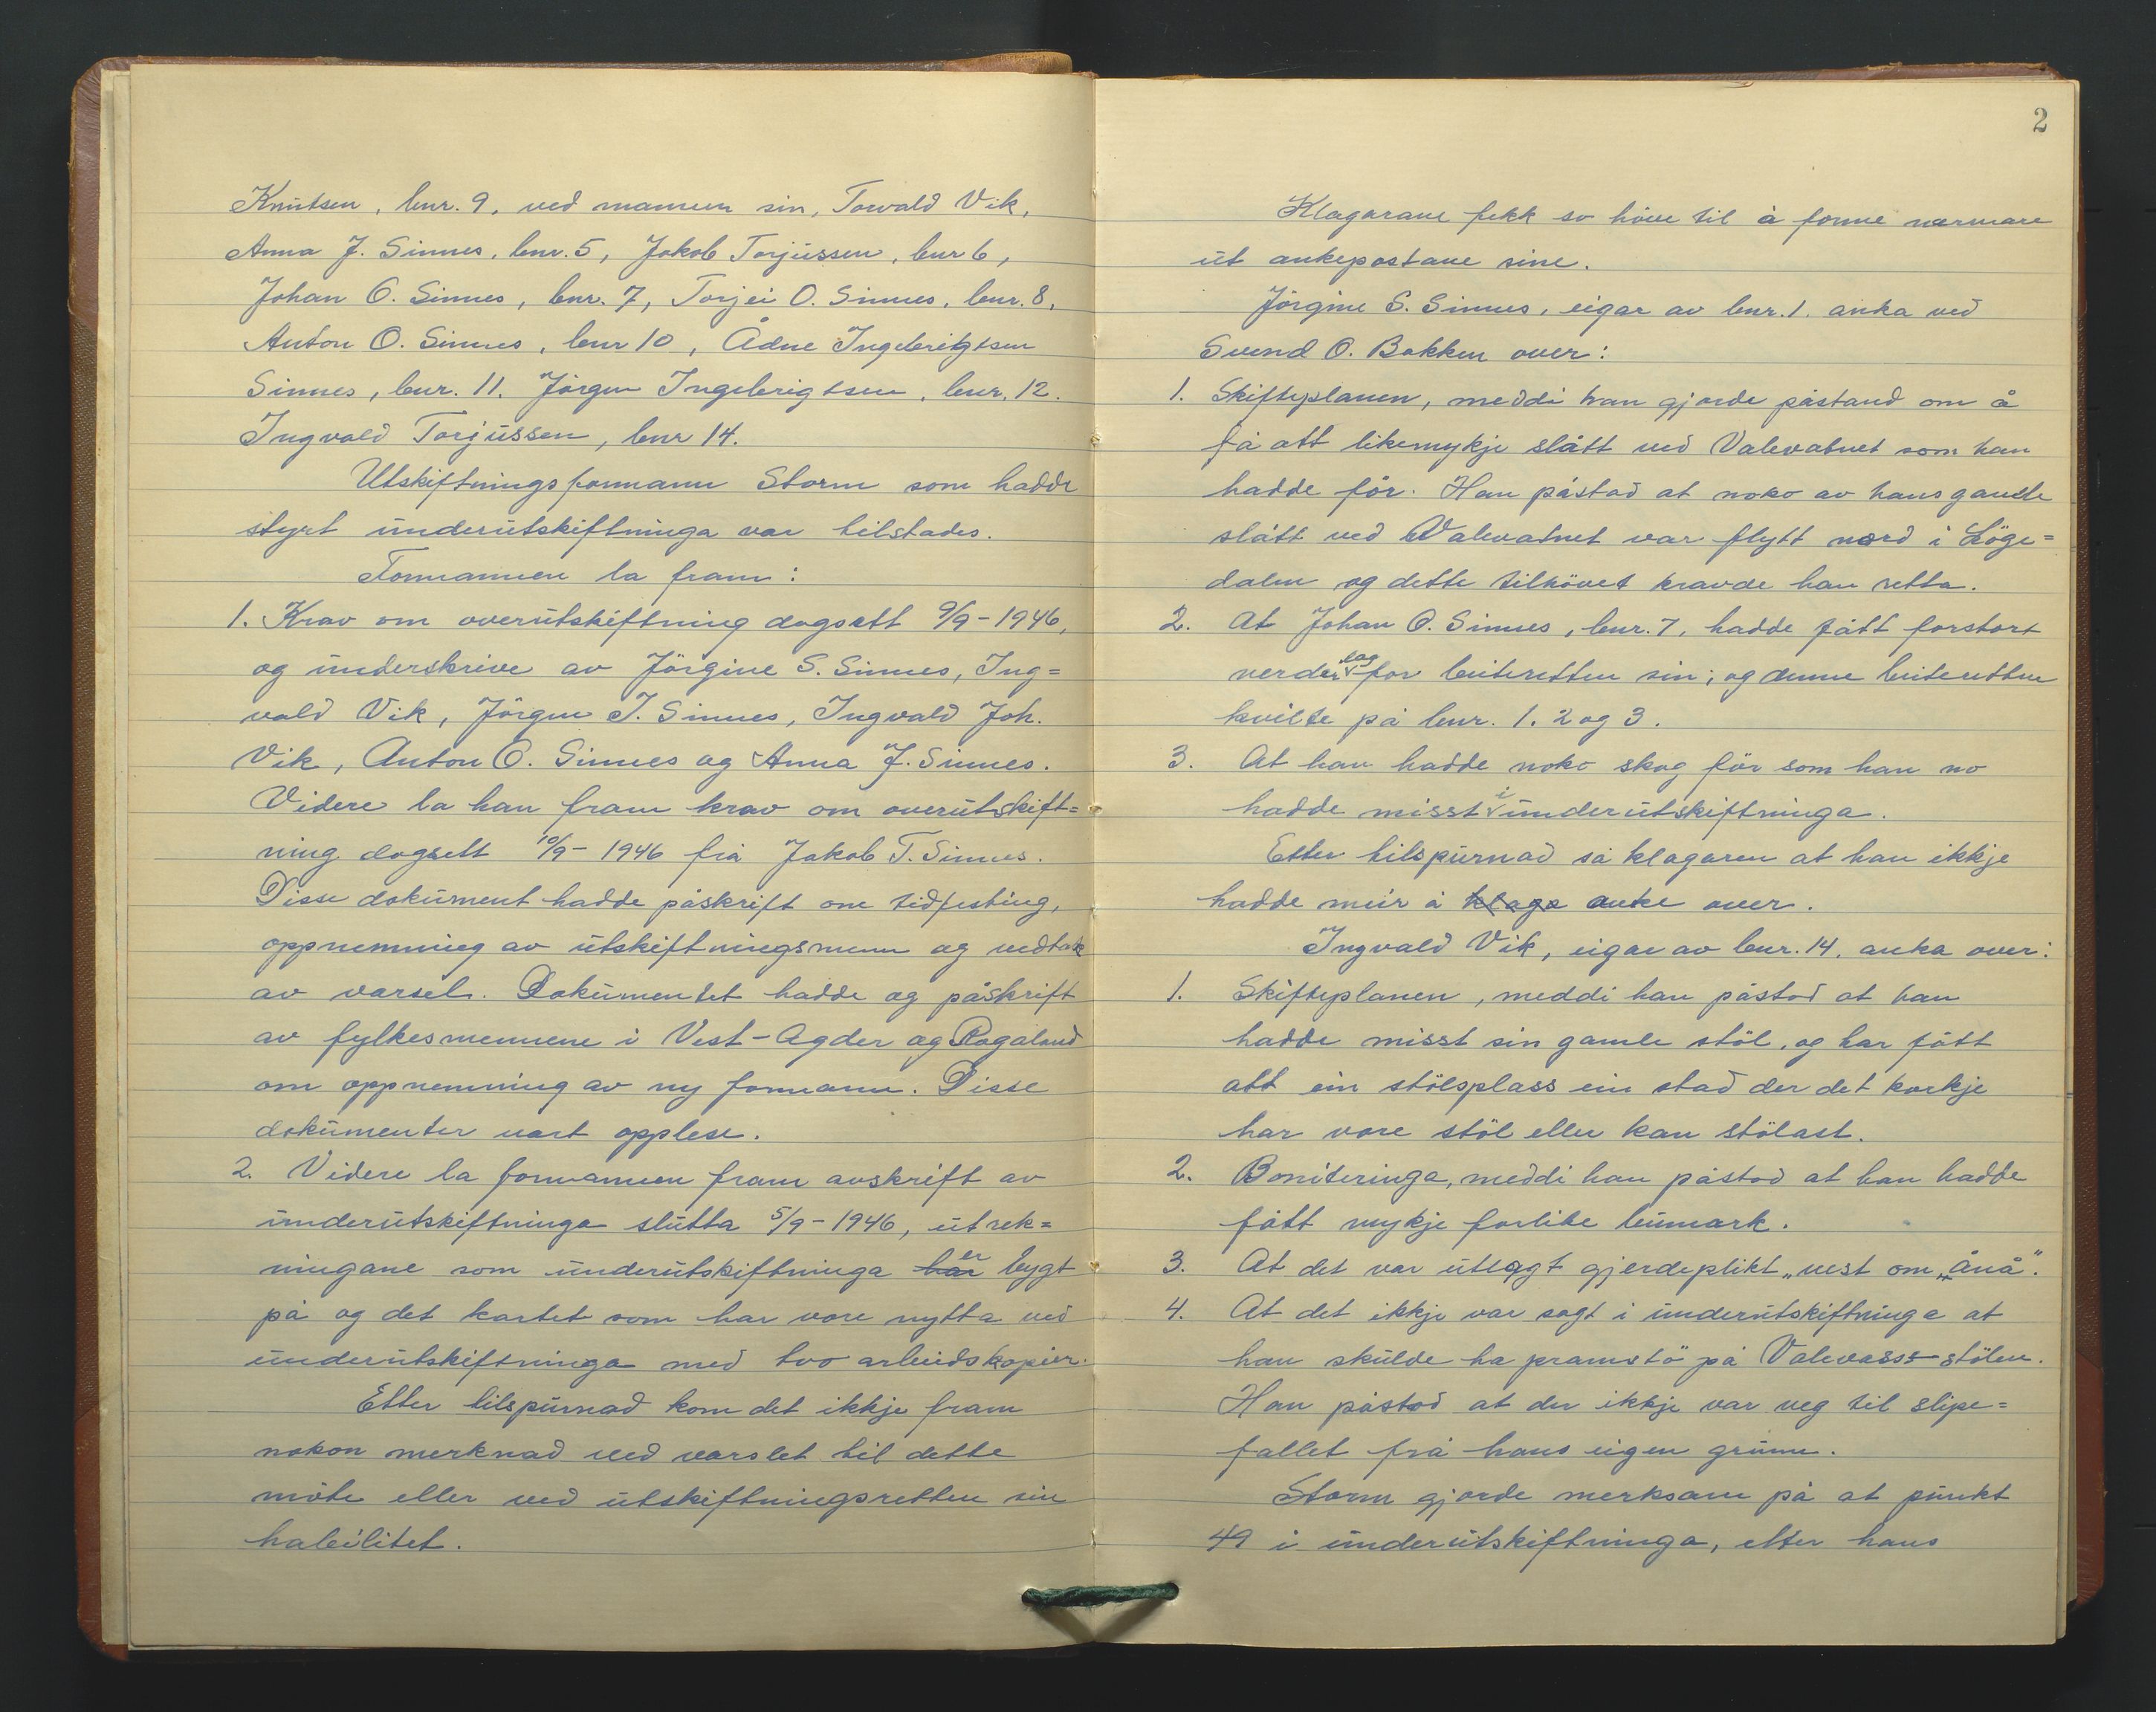 Knutsen, bnr. 9, ved mannen sin, Torvald Vik,
Anna J. Sinnes, bnr. 5, Jakob Torjussen, bnr 6,
Johan O. Sinnes, bnr. 7, Torjei O. Sinnes, bnr. 8,
Anton O. Sinnes, bnr 10, Ådne Ingebrigtsen
Sinnes, bnr. 11. Jörgen Ingebrigtsen, bnr. 12.
Ingvald Torjussen, bnr 14.
Utskiftningsformann Storm som hadde
styrt underutskiftninga var tilstades.
Formannen la fram:
1. Krav om overutskiftning dagsett 9/9-1946,
og underskrive av Jörgine S. Sinnes, Ing=
vald Vik, Jörgen I. Sinnes, Ingvald Joh.
Vik, Anton O. Sinnes og Anna J. Sinnes.
Videre la han fram krav om overutskift=
ning dagsett 10/9-1946 frå Jakob T. Sinnes.
Disse dokument hadde påskrift om tidfesting,
oppnemning av utskiftningsmenn og vedtak
av varsel. Dokumentet hadde og påskrift
av fylkesmennene i Vest-Agder og Rogaland
om oppnemning av ny formann. Disse
dokumenter vart opplese.
2. Videre la formannen fram avskrift av
underutskiftninga slutta 5/9-1946, utrek=
ningane som underutskiftninga har er bygt
på og det kartet som har vore nytta ved
underutskiftninga med tvo arbeidskopier.
Etter tilspurnad kom det ikkje fram
nokon merknad ved varslet til dette
möte eller ved utskiftningsretten sin
habilitet.
2
Klagarane fekk so höve til å forme nærmare
ut ankepostane sine.
Jörgine S. Sinnes, eigar av bnr. 1. anka ved
Svend O. Bakken over:
1. Skifteplanen, meddi han gjorde påstand om å
få att likemykje slått ved Valevatnet som han
hadde för. Han påstod at noko av hans gamle
slått ved Valevatnet var flytt nord i Löge=
dalen og dette tilhövet kravde han retta.
2. At Johan O. Sinnes, bnr. 7, hadde fått forstort
verderlag for beiteretten sin; og denne beiteretten
kvilte på bnr. 1. 2 og 3.
3. At han hadde noko skog för som han no
hadde misst i underutskiftninga.
Etter tilspurnad sa klagaren at han ikkje
hadde meir å klaga anke over.
Ingvald Vik, eigar av bnr. 14. anka over:
1. Skifteplanen, meddi han påstod at han
hadde misst sin gamle stöl, og har fått
att ein stölsplass ein stad der det korkje
har vore stöl eller kan stölast.
2. Boniteringa, meddi han påstod at han hadde
fått mykje forlite heimark.
3. At det var utlagt gjerdeplikt „vest om „ånå".
4. At det ikkje var sagt i underutskiftninga at
han skulde ha pramstö på Valevasss-stölen.
Han påstod at der ikkje var veg til slipe=
fallet frå hans eigen grunn.
Storm gjorde merksam på at punkt
49 i underutskiftninga, etter hans